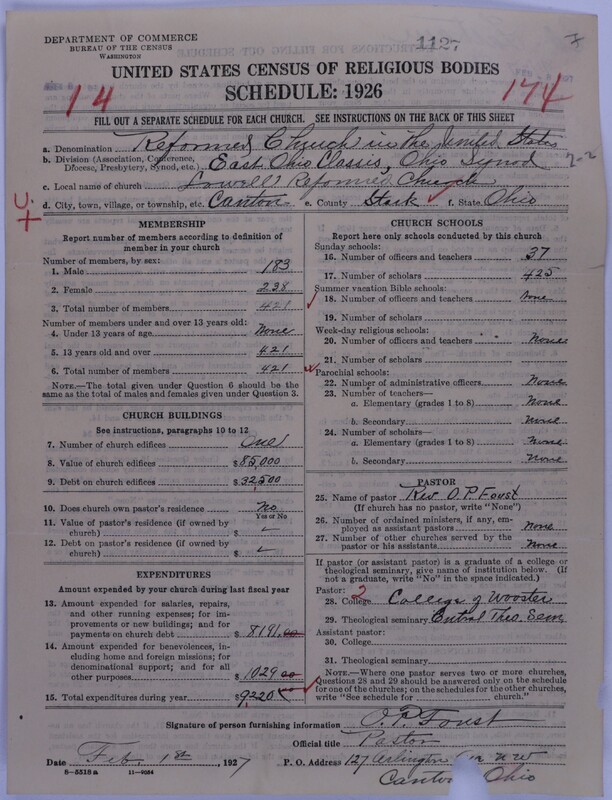 DEPARTMENT OF COMMERCE
BUREAU OF THE CENSUS
WASHINGTON
1127
UNITED STATES CENSUS OF RELIGIOUS BODIES
SCHEDULE: 1926
14
174
FILL OUT A SEPARATE SCHEDULE FOR EACH CHURCH. SEE INSTRUCTIONS ON THE BACK OF THIS SHEET
a. Denomination Reformed Church in the United States
b. Division (Association, Conference, Diocese, Presbytery, Synod, etc.) East Ohio Classis, Ohio Synod
2-2
c. Local name of church Lowell Reformed Church
d. City, town, village, or township, etc. Canton e. County Stark f. State Ohio
MEMBERSHIP
Report number of members according to definition of member in your church
Number of members, by sex:
1. Male 183
2. Female 238
3. Total number of members 421
Number of members under and over 13 years old:
4. Under 13 years of age None
5. 13 years old and over 421
6. Total number of members 421
NOTE.—The total given under Question 6 should be the same as the total of males and females given under Question 3.
CHURCH BUILDINGS
See instructions, paragraphs 10 to 12
7. Number of church edifices One
8. Value of church edifices $85,000
9. Debt on church edifices $32,500
10. Does church own pastor's residence? No
Yes or No
11. Value of pastor's residence (if owned by church) $
12. Debt on pastor's residence (if owned by church) $
EXPENDITURES
Amount expended by your church during last fiscal year
13. Amount expended for salaries, repairs, and other running expenses; for improvements or new buildings; and for payments on church debt $8191.00
14. Amount expended for benevolences, including home and foreign missions; for denominational support; and for all other purposes $1029.00
15. Total expenditures during year $9220
CHURCH SCHOOLS
Report here only schools conducted by this church
Sunday schools:
16. Number of officers and teachers 37
17. Number of scholars 425
Summer vacation Bible schools:
18. Number of officers and teachers None
19. Number of scholars
Week-day religious schools:
20. Number of officers and teachers None
21. Number of scholars
Parochial schools:
22. Number of administrative officers None
23. Number of teachers—
a. Elementary (grades 1 to 8) None
b. Secondary None
24. Number of scholars—
a. Elementary (grades 1 to 8) None
b. Secondary None
PASTOR
25. Name of pastor Rev. O. P. Foust
(If church has no pastor, write "None")
26. Number of ordained ministers, if any, employed as assistant pastors None
27. Number of other churches served by the pastor or his assistants None
If pastor (or assistant pastor) is a graduate of a college or theological seminary, give name of institution below. (If not a graduate, write "No" in the space indicated.)
Pastor: 2
28. College College of Wooster
29. Theological seminary Central Theo. Sem.
Assistant pastor:
30. College
31. Theological seminary
NOTE.—Where one pastor serves two or more churches, Questions 28 and 29 should be answered only on the schedule for one of the churches; on the schedules for the other churches, write "See schedule for church."
Signature of person furnishing information O. P. Foust
Official title Pastor
Date Feb. 1st, 1927
P. O. Address 127 Arlington N W
Canton Ohio
8-5518a 11-9054